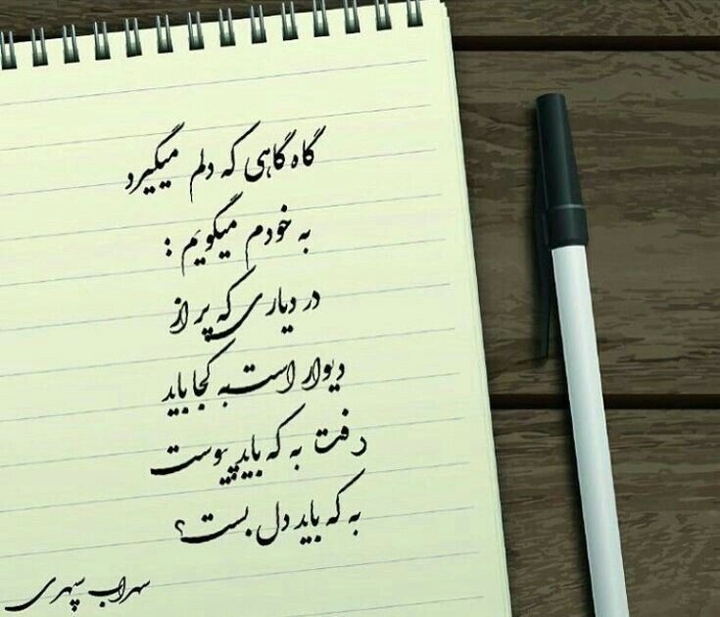 گاه گاهی که دلم میگیرد
به خودم میگویم :
در دیاری که پر از
دیوار است به کجا باید
رفت به که باید پیوست
به که باید دل بست؟
سهراب سپهری